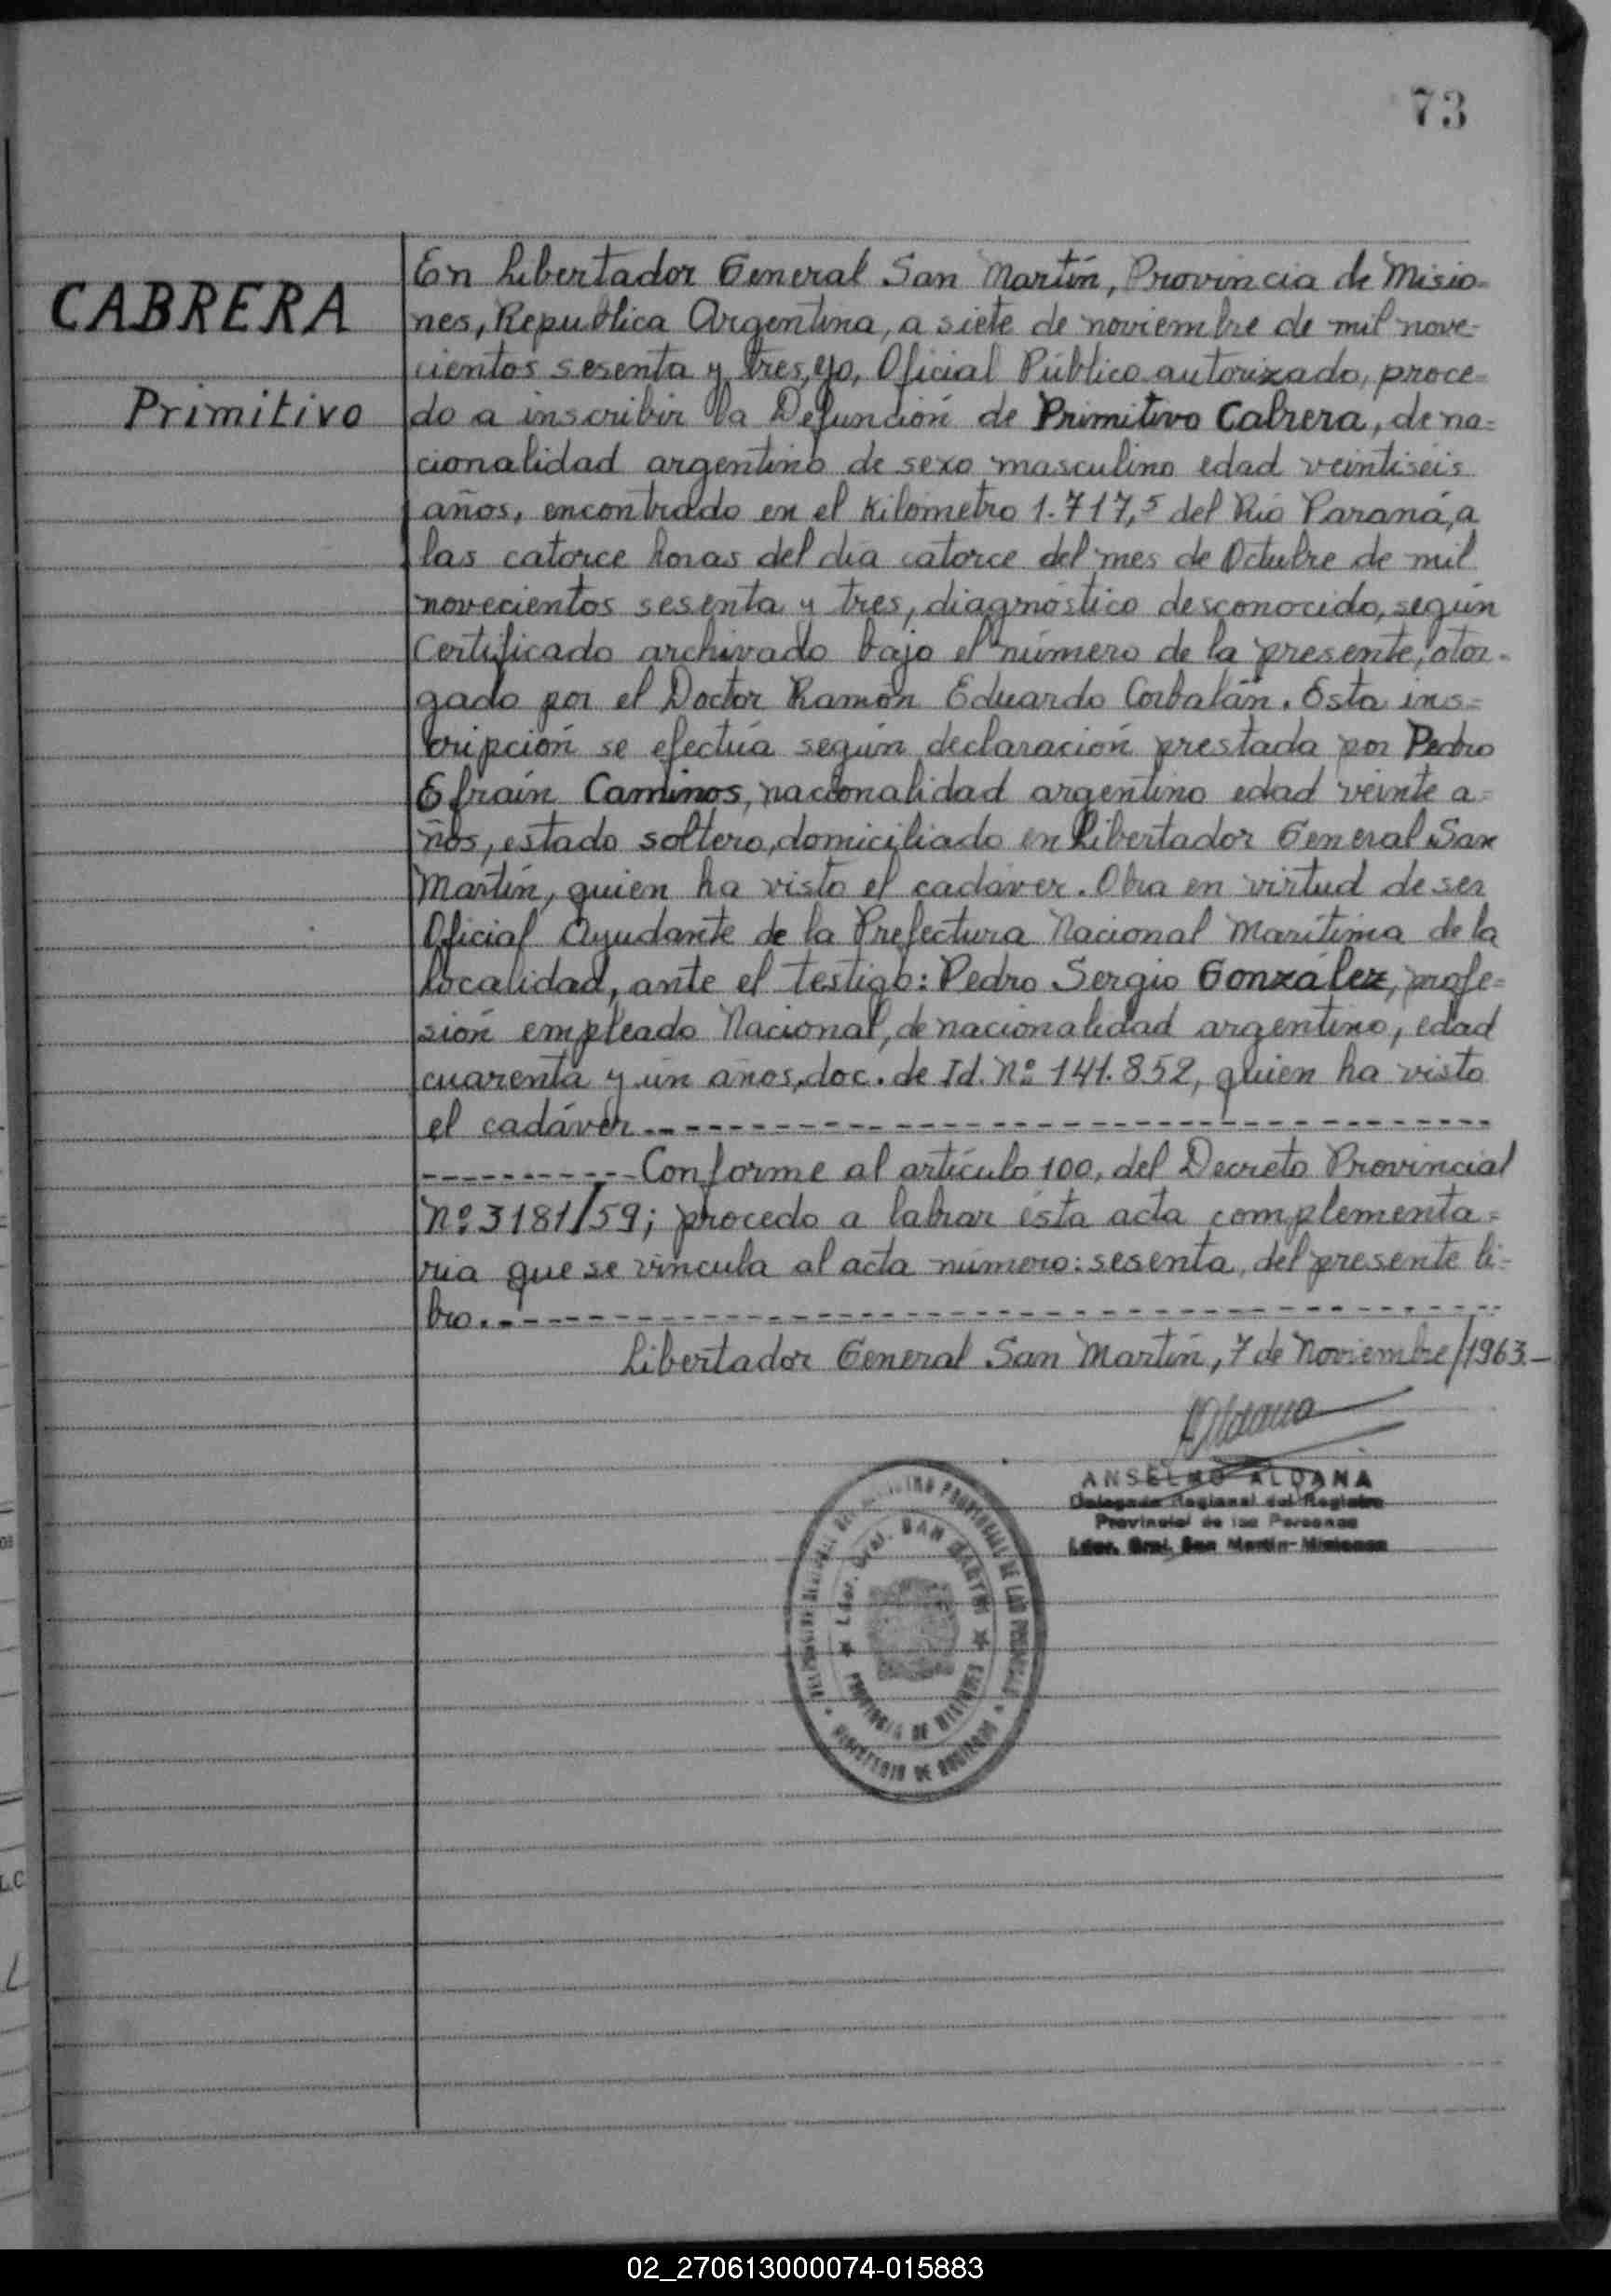 73
CABRERA
Primitivo
En Libertador General San Martín, Provincia de Misio=
nes, Republica Argentina, a siete de noviembre de mil nove=
cientos sesenta y tres, yo, Oficial Público autorizado, proce=
do a inscribir la Defunción de Primitivo Cabrera, de na=
cionalidad argentino de sexo masculino edad veintiseis
años, encontrado en el Kilómetro 1.717,5 del Rio Paraná, a
las catorce horas del día catorce del mes de Octubre de mil
novecientos sesenta y tres, diagnóstico desconocido, según
Certificado archivado bajo el número de la presente, otor=
gado por el Doctor Ramón Eduardo Corbalán. Esta ins=
cripción se efectúa según declaración prestada por Pedro
Efraín Caminos, nacionalidad argentino edad veinte a=
ños, estado soltero, domiciliado en Libertador General San
Martín, quien ha visto el cadáver. Obra en virtud de ser
Oficial Ayudante de la Prefectura Nacional Marítima de la
localidad, ante el testigo: Pedro Sergio González, profe=
sión empleado Nacional, de nacionalidad argentino, edad
cuarenta y un años, doc. de Id. Nº 141.852, quien ha visto
el cadáver.---
---Conforme al artículo 100, del Decreto Provincial
Nº 3181/59; procedo a labrar ésta acta complementa=
ria que se vincula al acta número: sesenta, del presente li=
bro.---
Libertador General San Martín, 7 de Noviembre/1963.-
ANSELMO ALDANA
Delegado Regional del Registro
Provincial de las Personas
Ldor. Gral. San Martín-Misiones
PROVINCIAL DE LAS PERSONAS
Ldor. Gral. SAN MARTIN
PROVINCIA DE MISIONES
MINISTERIO DE GOBIERNO
02_270613000074-015883